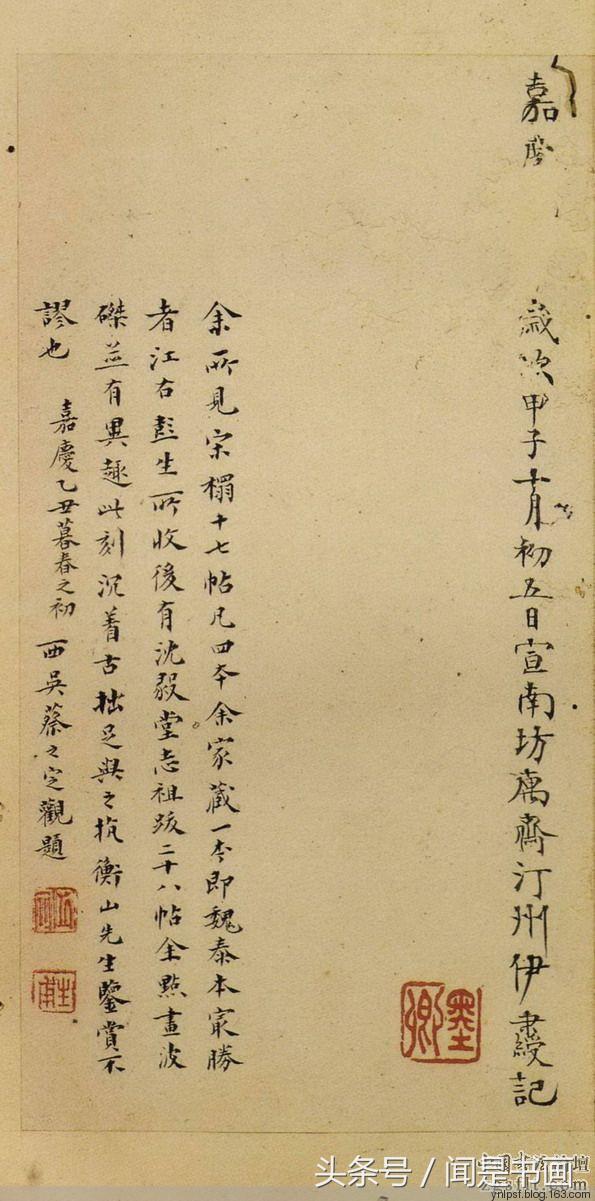 嘉慶
歲次甲子十月初五日宣南坊寓齋汀州伊秉綬記
墨卿
余所見宋榻十七帖凡四本余家藏一本即魏泰本最勝
者江右彭生所收後有沈毅堂志祖跋二十八帖全點畫波
磔並有異趣此刻沉著古拙足與之抗衡山先生鑒賞不
謬也 嘉慶乙丑暮春之初 西吳蔡之定觀題
头条号 / 闻是书画
ynlpsf.blog.163.com